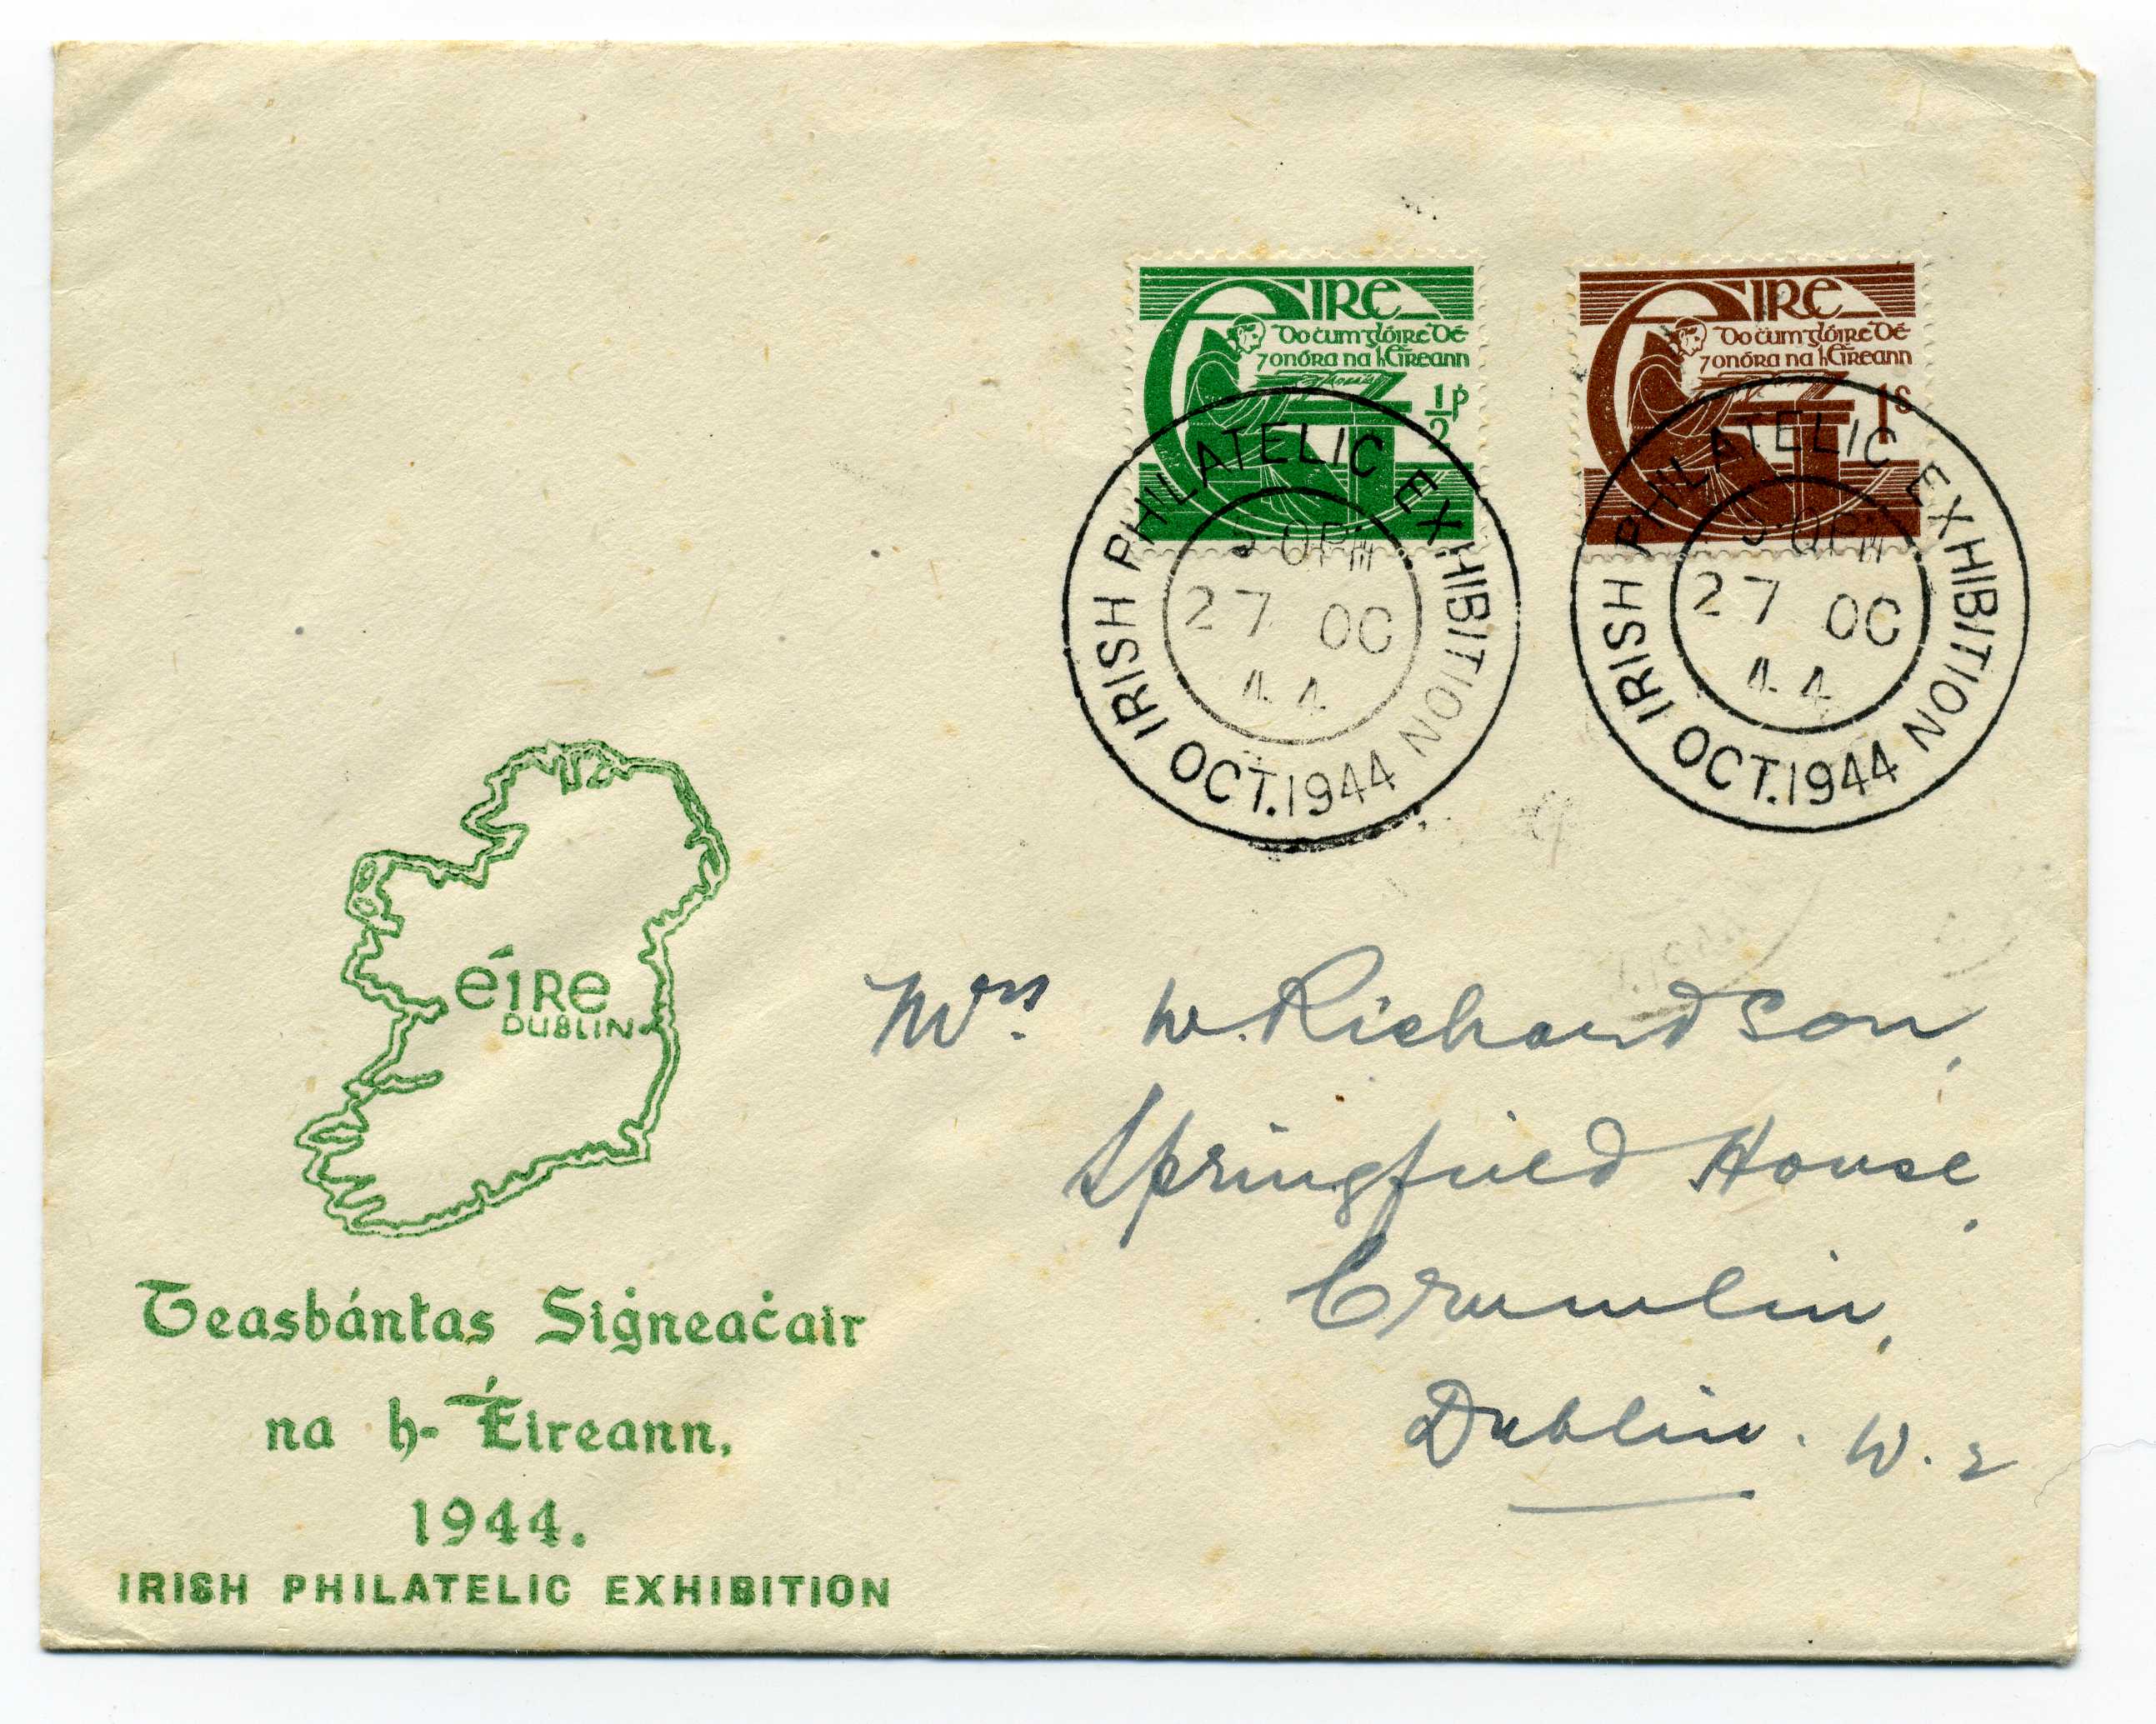 éIRe
Do ċum glóire Dé
⁊ onóra na hÉireann
½p
éIRe
Do ċum glóire Dé
⁊ onóra na hÉireann
1s
IRISH PHILATELIC EXHIBITION
OCT. 1944
0PM
27 OC
44
IRISH PHILATELIC EXHIBITION
OCT. 1944
0PM
27 OC
44
éire
DUBLIN
Mrs. W. Richardson,
Springfield House,
Crumlin,
Dublin. W. 2
Teasbántas Siġneaċair
na h-Éireann,
1944.
IRISH PHILATELIC EXHIBITION